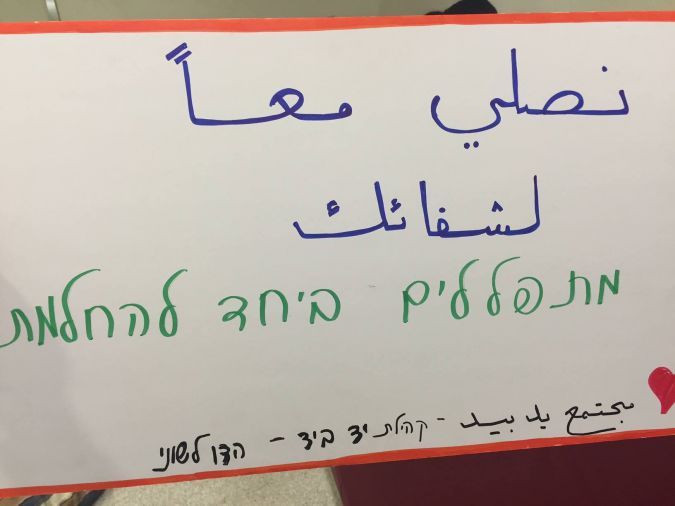 نصلي معاً
لشفائك
מתפללים ביחד להחלמת
مجتمع يد بيد - קהלת יד ביד - הדו לשוני